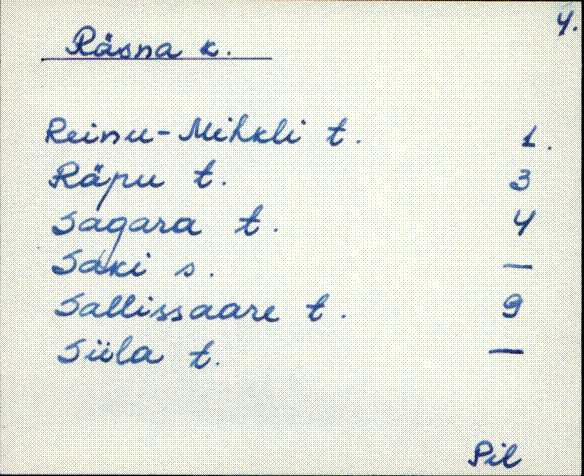 4.
Räsna k.
Reinu-Mihkli t. 1.
Räpu t. 3
Sagara t. 4
Saki s. —
Sallissaare t. 9
Siila t. —
Pil